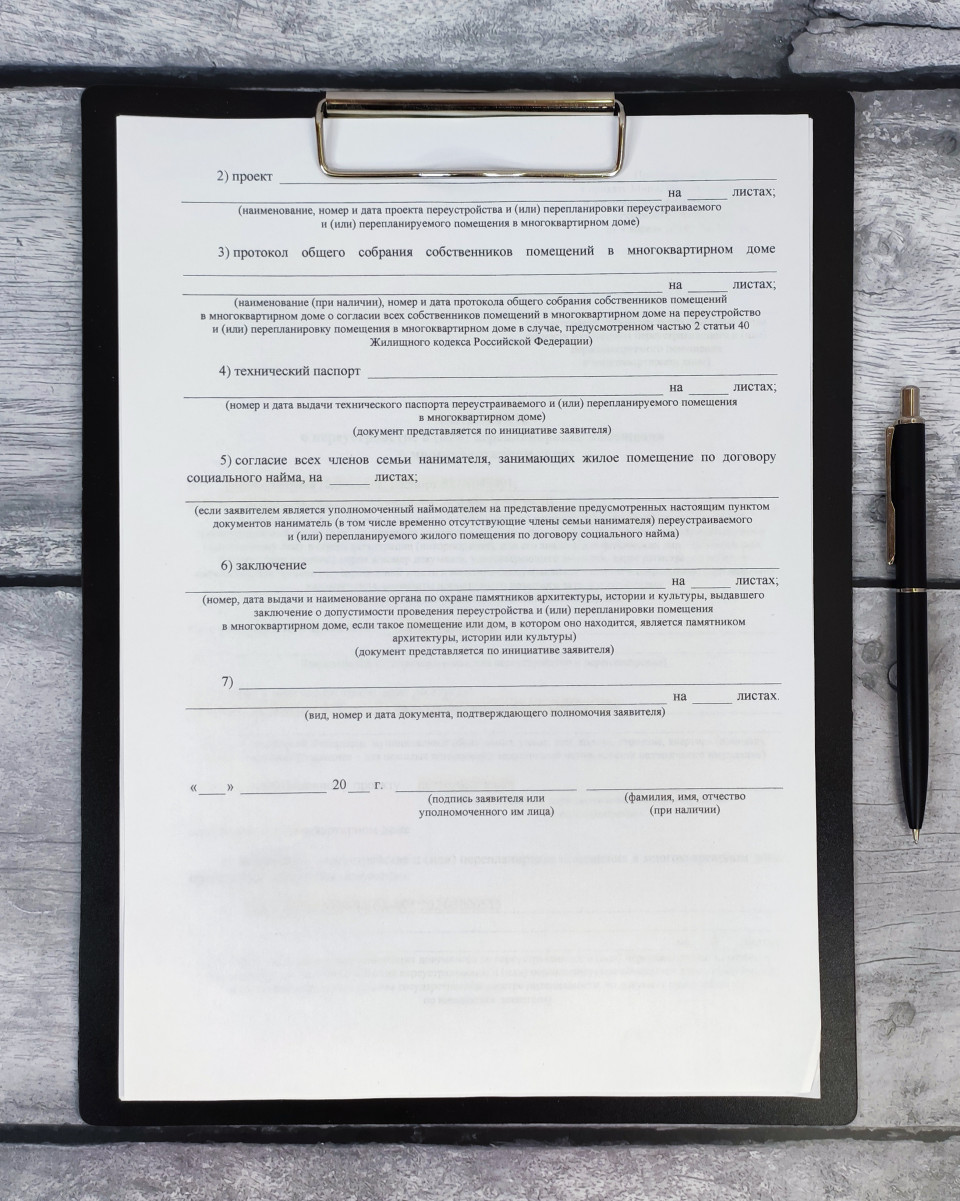 2) проект ____
____ на ____ листах;
(наименование, номер и дата проекта переустройства и (или) перепланировки переустраиваемого
и (или) перепланируемого помещения в многоквартирном доме)
3) протокол общего собрания собственников помещений в многоквартирном доме
____ на ____ листах;
(наименование (при наличии), номер и дата протокола общего собрания собственников помещений
в многоквартирном доме о согласии всех собственников помещений в многоквартирном доме на переустройство
и (или) перепланировку помещения в многоквартирном доме в случае, предусмотренном частью 2 статьи 40
Жилищного кодекса Российской Федерации)
4) технический паспорт ____
____ на ____ листах;
(номер и дата выдачи технического паспорта переустраиваемого и (или) перепланируемого помещения
в многоквартирном доме)
(документ представляется по инициативе заявителя)
5) согласие всех членов семьи нанимателя, занимающих жилое помещение по договору
социального найма, на ____ листах;
(если заявителем является уполномоченный наймодателем на представление предусмотренных настоящим пунктом
документов наниматель (в том числе временно отсутствующие члены семьи нанимателя) переустраиваемого
и (или) перепланируемого жилого помещения по договору социального найма)
6) заключение ____
____ на ____ листах;
(номер, дата выдачи и наименование органа по охране памятников архитектуры, истории и культуры, выдавшего
заключение о допустимости проведения переустройства и (или) перепланировки помещения
в многоквартирном доме, если такое помещение или дом, в котором оно находится, является памятником
архитектуры, истории или культуры)
(документ представляется по инициативе заявителя)
7) ____
____ на ____ листах.
(вид, номер и дата документа, подтверждающего полномочия заявителя)
«____» ____ 20___ г. ____ ____
(подпись заявителя или
уполномоченного им лица)
(фамилия, имя, отчество
(при наличии)